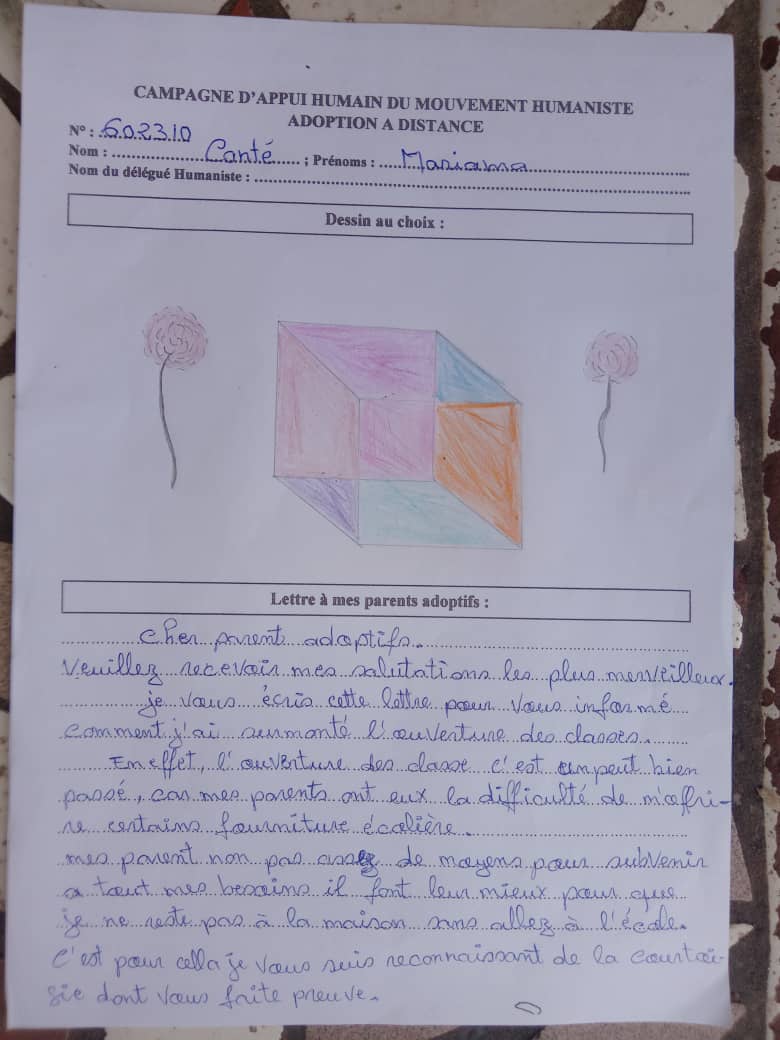 CAMPAGNE D'APPUI HUMAIN DU MOUVEMENT HUMANISTE
ADOPTION A DISTANCE
N° : 602310
Nom : Canté ; Prénoms : Mariama
Nom du délégué Humaniste :
Dessin au choix :
Lettre à mes parents adoptifs :
Cher parents adoptifs.
Veuillez recevoir mes salutations les plus merveilleux.
je vous écris cette lettre pour vous informé
comment j'ai surmonté l'ouverture des classes.
En effet, l'ouverture des classe c'est un peut bien
passé, car mes parents ont eux la difficulté de m'offri-
re certains fourniture écolière.
mes parent non pas assez de moyens pour subvenir
a tout mes besoins il font leur mieux pour que
je ne reste pas à la maison sans allez à l'école.
C'est pour cella je vous suis reconnaissant de la courtoi-
sie dont vous faite preuve.